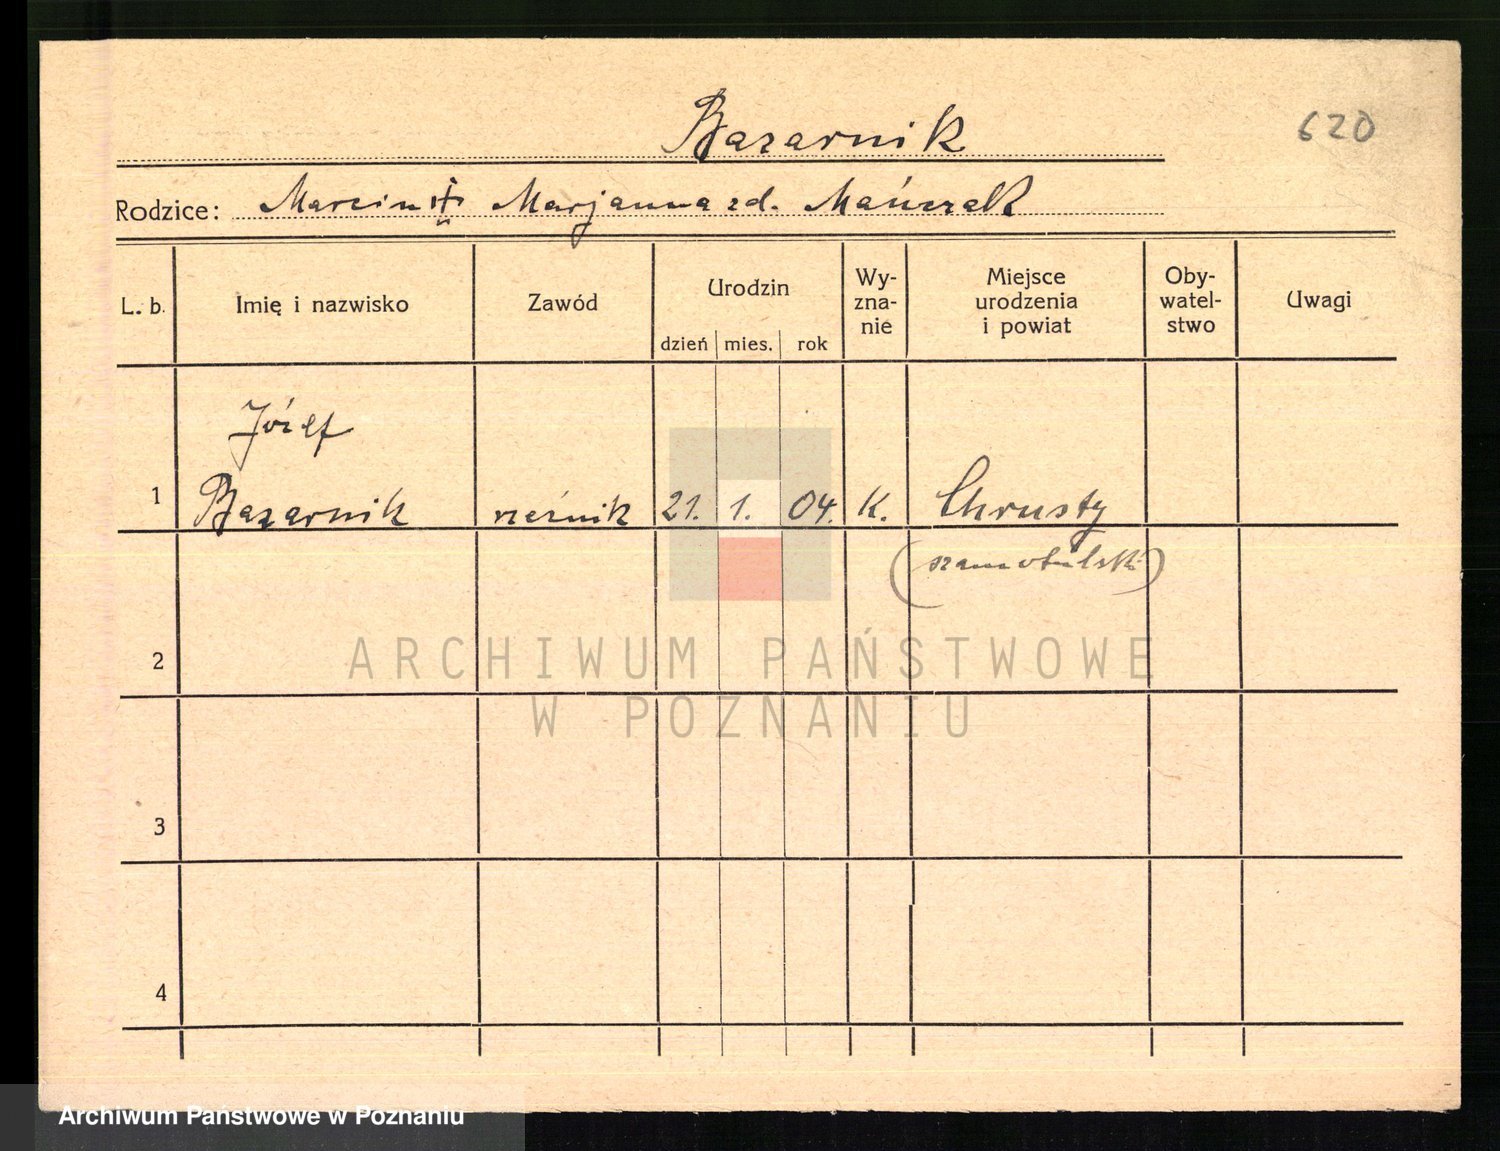 Bazarnik
620
Rodzice: Marcin i Marjanna zd. Mańczak
L. b. Imię i nazwisko Zawód Urodzin dzień mies. rok Wy-zna-nie Miejsce urodzenia i powiat Oby-watel-stwo Uwagi
Józef
1 Bazarnik rzeźnik 21. 1. 04. K. Chrusty
(szamotulski)
2
ARCHIWUM PAŃSTWOWE
W POZNANIU
3
4
Archiwum Państwowe w Poznaniu